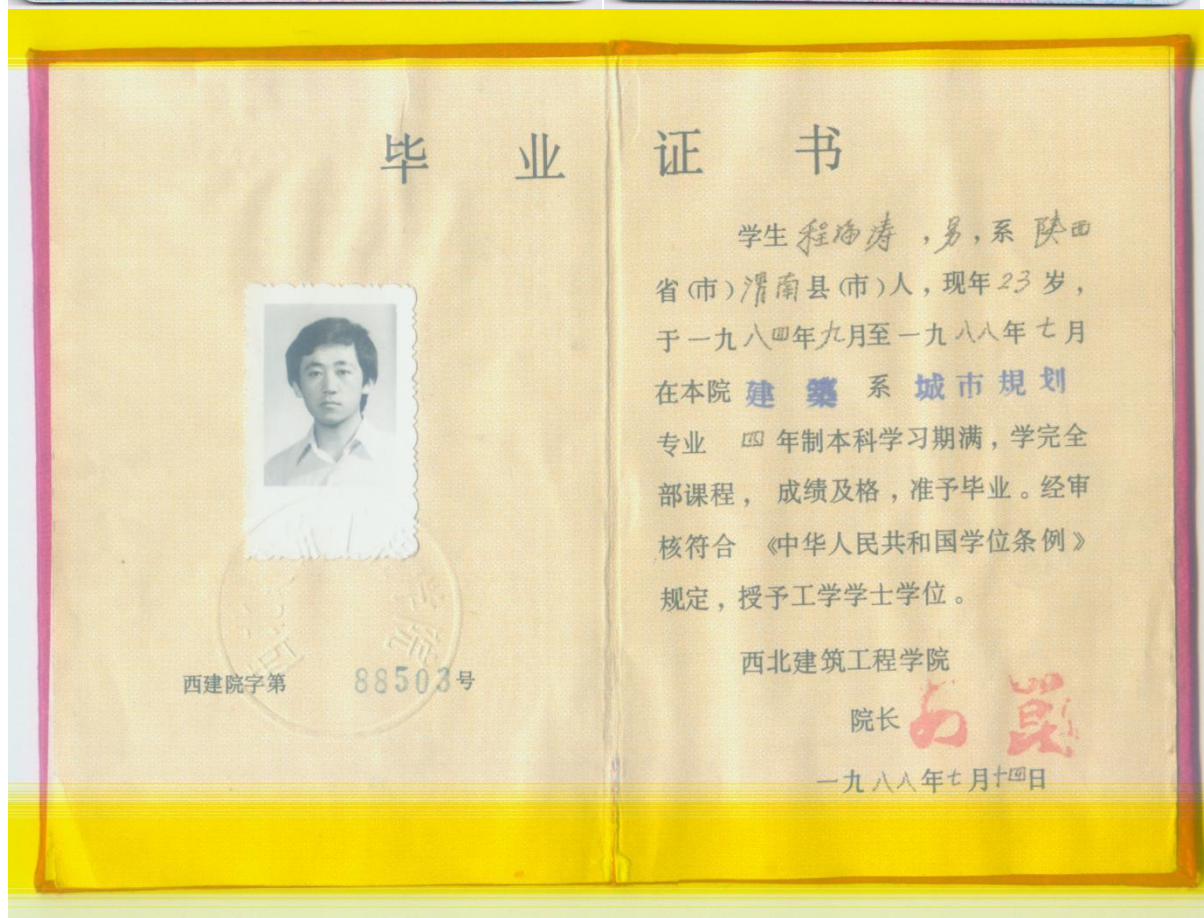 毕业证书
学生程海涛，男，系陕西
省(市)渭南县(市)人，现年23岁，
于一九八四年九月至一九八八年七月
在本院建築系城市規划
专业 四年制本科学习期满，学完全
部课程，成绩及格，准予毕业。经审
核符合《中华人民共和国学位条例》
规定，授予工学学士学位。
西北建筑工程学院
院长
一九八八年七月十四日
西建院字第 88503号